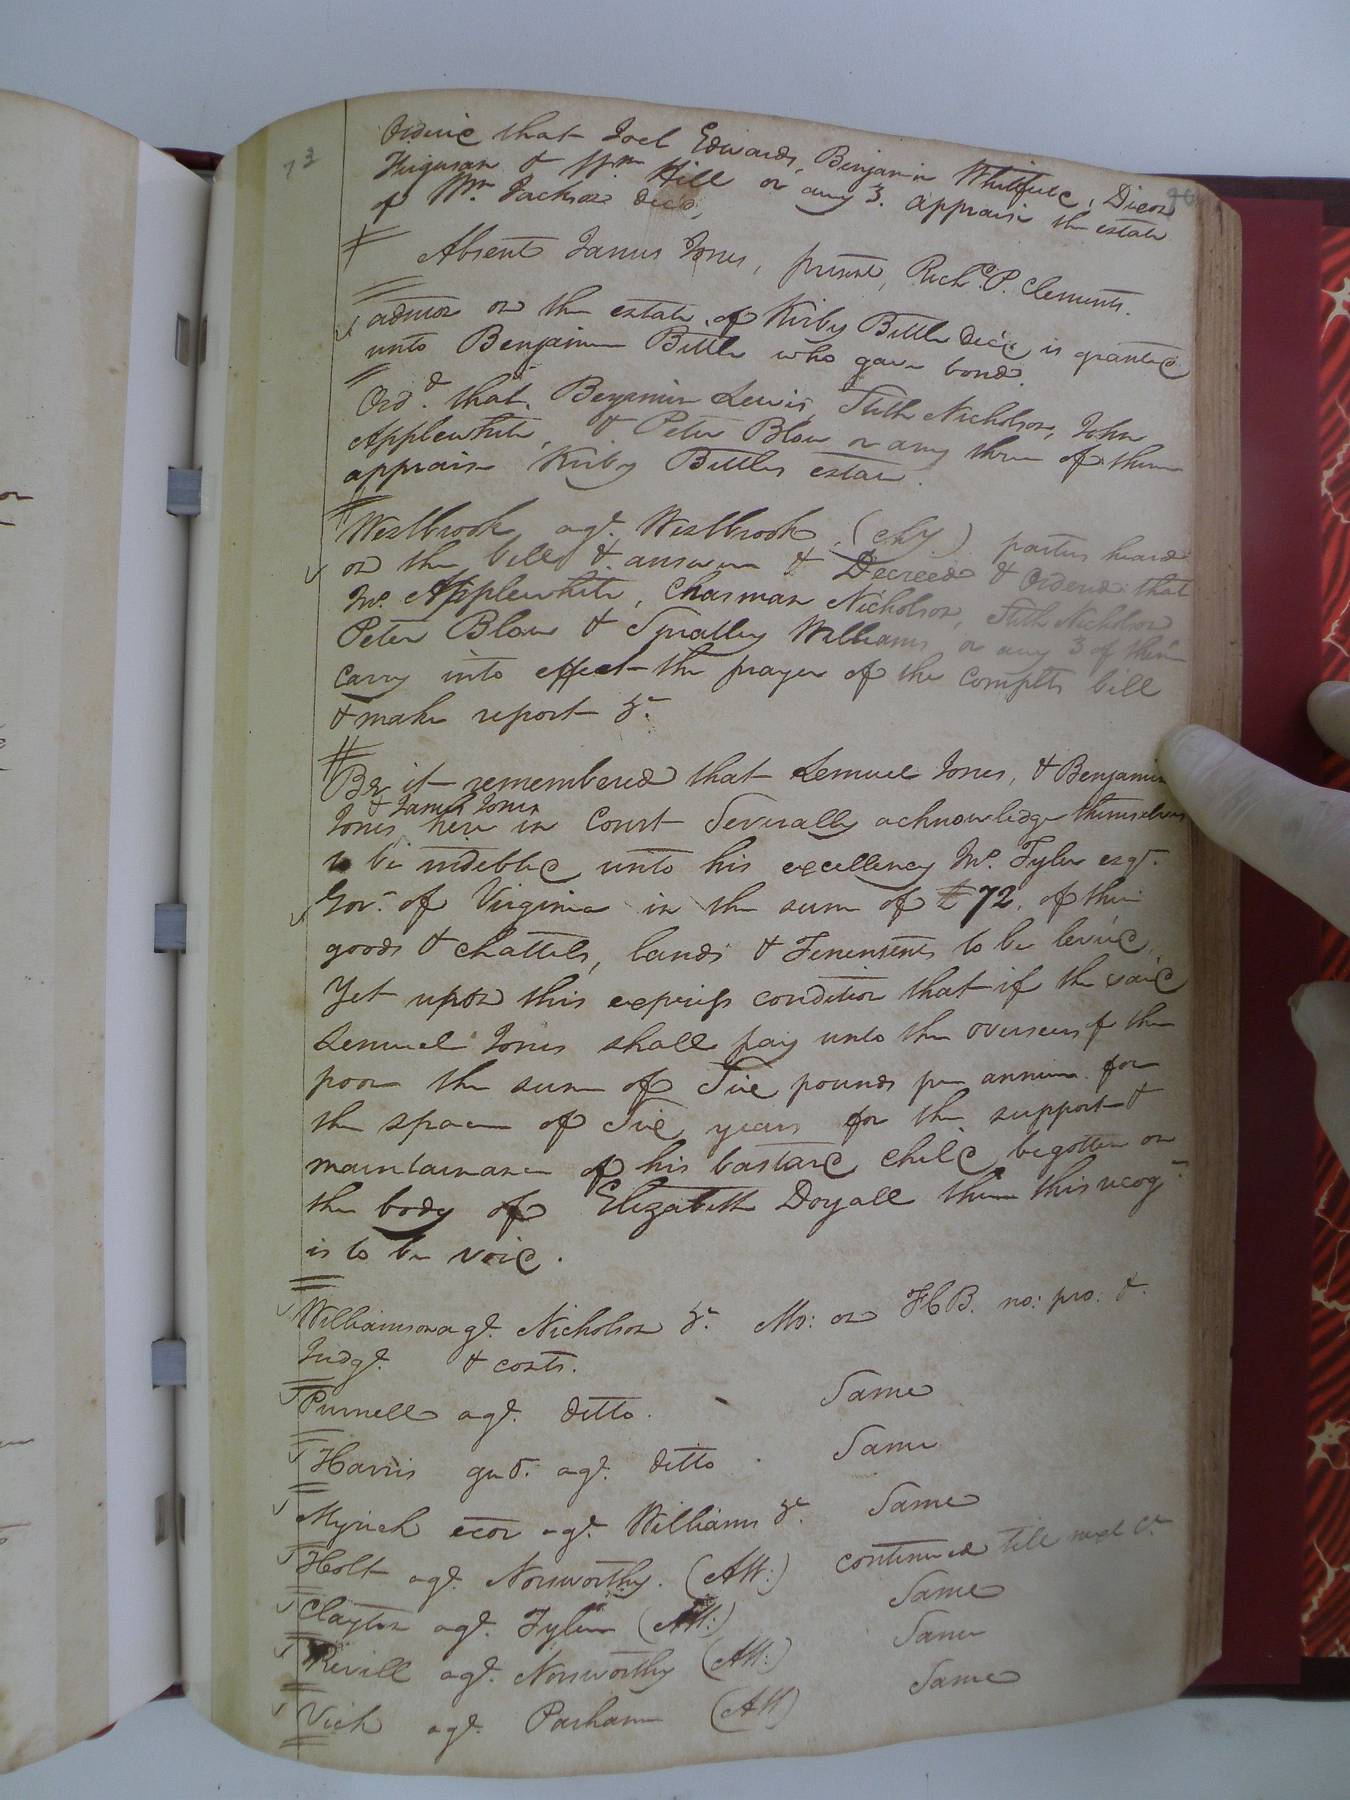 73
Ordered that Joel Edwards, Benjamin Whitfield, Dixon
Furguson & Wm Hill or any 3. appraise the estate
of Wm. Jackson decd,
Absent James Jones, present, Richd. P. Clements.
admon on the estate of Kirby Bittle decd is granted
unto Benjamin Bittle who gave bond.
Ord.d that Benjamin Lewis, Stith Nicholson, John
Applewhite, & Peter Blow or any three of them
appraise Kirby Bittles estate.
Westbrook agt. Westbrook (chy) parties heard
on the bill & answer & Decreed & Ordered that
Jno. Applewhite, Charman Nicholson, Stith Nicholson
Peter Blow & Smalley Williams or any 3 of them
carry into effect the prayer of the complts bill
& make report &c.
Be it remembered that Lemuel Jones, & Benjamin
& James Jones
Jones here in Court Severally acknowledge themselves
to be indebted unto his excellency Jno. Tyler esqr.
Govr. of Virginia in the sum of £72. of their
goods & chattels, lands & Tenements to be levied,
Yet upon this express condition that if the said
Lemuel Jones shall pay unto the overseers of the
poor the sum of Six pounds per annum for
the space of Six years for the support &
maintainance of his bastard child begotten on
the body of Elizabeth Doyall then this recog.
is to be void.
Williamson agt. Nicholson &c. Mo: on F.B. no: pro. &
Judgt. & costs.
Purnell agt. ditto. Same
Harris gud. agt. ditto. Same
Myrick exor agt. Williams &c. Same
Holt agt. Norsworthy. (Att:) continued till next Ct.
Clayton agt. Tyler (Att:) Same
Revill agt. Norsworthy (Att:) Same
Vick agt. Parham (Att) Same